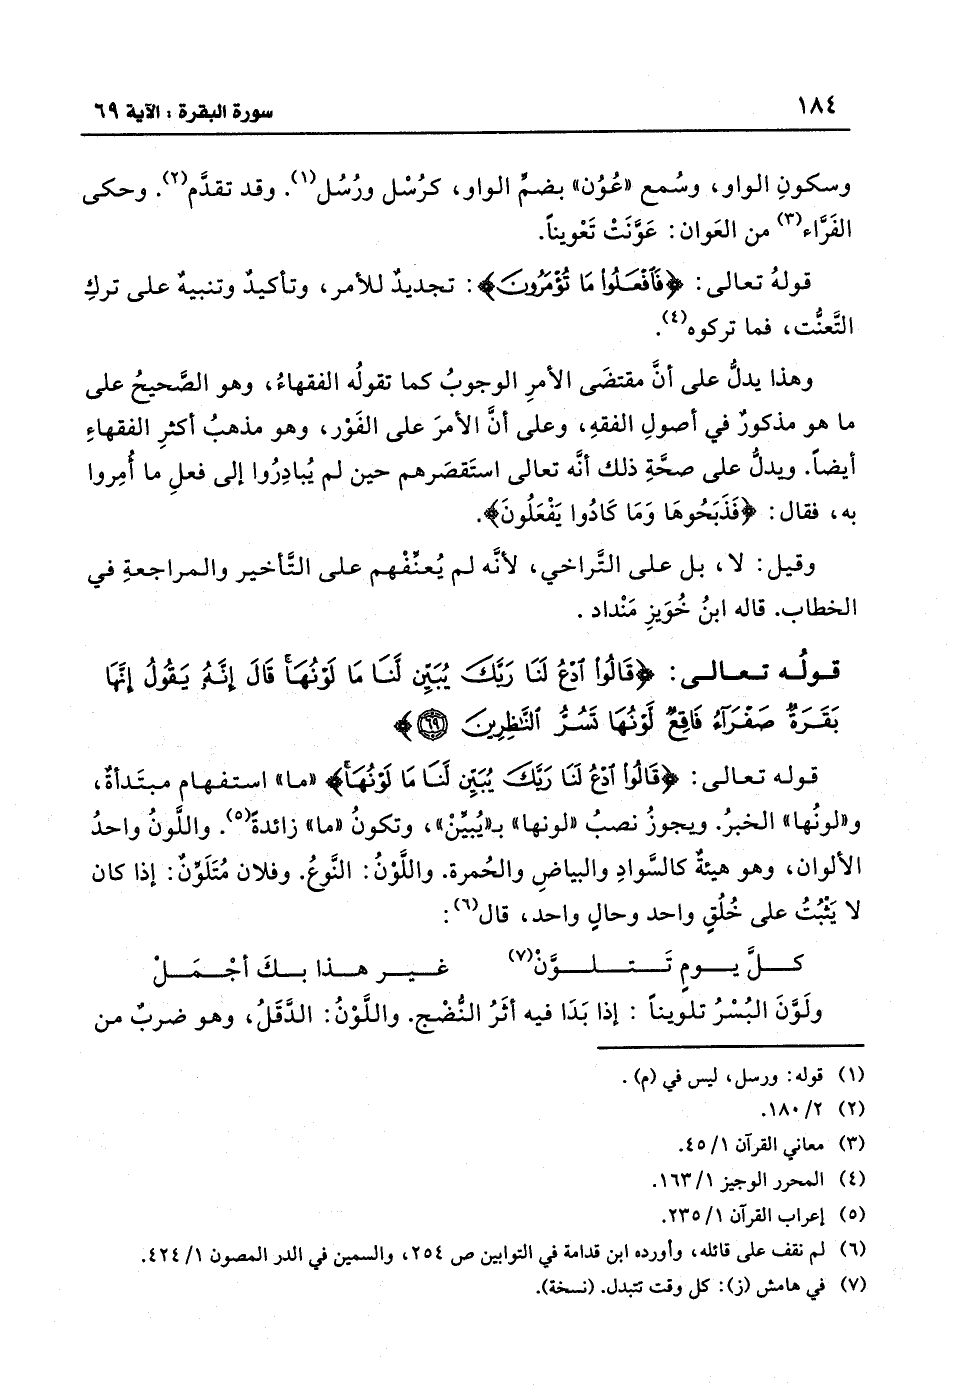 ١٨٤
سورة البقرة : الآية ٦٩
وسكونِ الواو، وسُمع «عُوُن» بضمِّ الواو، كرُسْل ورُسُل(١). وقد تقدَّم(٢). وحكى
الفَرَّاء(٣) من العَوان: عَوَّنَتْ تَعْويناً.
قولهُ تعالى: ﴿فَٱفْعَلُوا۟ مَا تُؤْمَرُونَ﴾: تجديدٌ للأمر، وتأكيدٌ وتنبيهٌ على تركِ
التَّعنُّت، فما تركوه(٤).
وهذا يدلُّ على أنَّ مقتضَى الأمرِ الوجوبُ كما تقولُه الفقهاءُ، وهو الصَّحيحُ على
ما هو مذكورٌ في أصولِ الفقهِ، وعلى أنَّ الأمرَ على الفَوْر، وهو مذهبُ أكثرِ الفقهاءِ
أيضاً. ويدلُّ على صحَّةِ ذلك أنَّه تعالى استَقصَرهم حين لم يُبادِرُوا إلى فعلِ ما أُمِروا
به، فقال: ﴿فَذَبَحُوهَا وَمَا كَادُوا يَفْعَلُونَ﴾.
وقيل: لا، بل على التَّراخي، لأنَّه لم يُعنِّفْهم على التَّأخير والمراجعةِ في
الخطاب. قاله ابنُ خُوَيزِ مَنْداد .
قولُه تعالى: ﴿قَالُوا۟ ٱدْعُ لَنَا رَبَّكَ يُبَيِّن لَّنَا مَا لَوْنُهَاۚ قَالَ إِنَّهُۥ يَقُولُ إِنَّهَا
بَقَرَةٌ صَفْرَآءُ فَاقِعٌ لَّوْنُهَا تَسُرُّ ٱلنَّٰظِرِينَ ٦٩﴾
قوله تعالى: ﴿قَالُوا۟ ٱدْعُ لَنَا رَبَّكَ يُبَيِّن لَّنَا مَا لَوْنُهَاۚ﴾ «ما» استفهام مبتَدأةٌ،
و«لونُها» الخبرُ. ويجوز نصبُ «لونها» بـ«يُبيِّنْ»، وتكونُ «ما» زائدةً(٥). واللَّونُ واحدُ
الألوان، وهو هيئةٌ كالسَّوادِ والبياضِ والحُمرة. واللَّوْنُ: النَّوعُ. وفلان مُتَلَوِّنٌ: إذا كان
لا يَثْبُتُ على خُلُقٍ واحد وحالٍ واحد، قال(٦):
كلَّ يومٍ تَتلوَّنْ(٧) غير هذا بكَ أجْمَلْ
ولَوَّنَ البُسْرُ تلويناً : إذا بَدَا فيه أثَرُ النُّضْج. واللَّوْنُ: الدَّقَلُ، وهو ضربٌ من
(١) قوله: ورسل، ليس في (م) .
(٢) ٢/ ١٨٠.
(٣) معاني القرآن ١/ ٤٥.
(٤) المحرر الوجيز ١/ ١٦٣.
(٥) إعراب القرآن ١/ ٢٣٥.
(٦) لم نقف على قائله، وأورده ابن قدامة في التوابين ص ٢٥٤، والسمين في الدر المصون ١/ ٤٢٤.
(٧) في هامش (ز): كل وقت تتبدل. (نسخة).